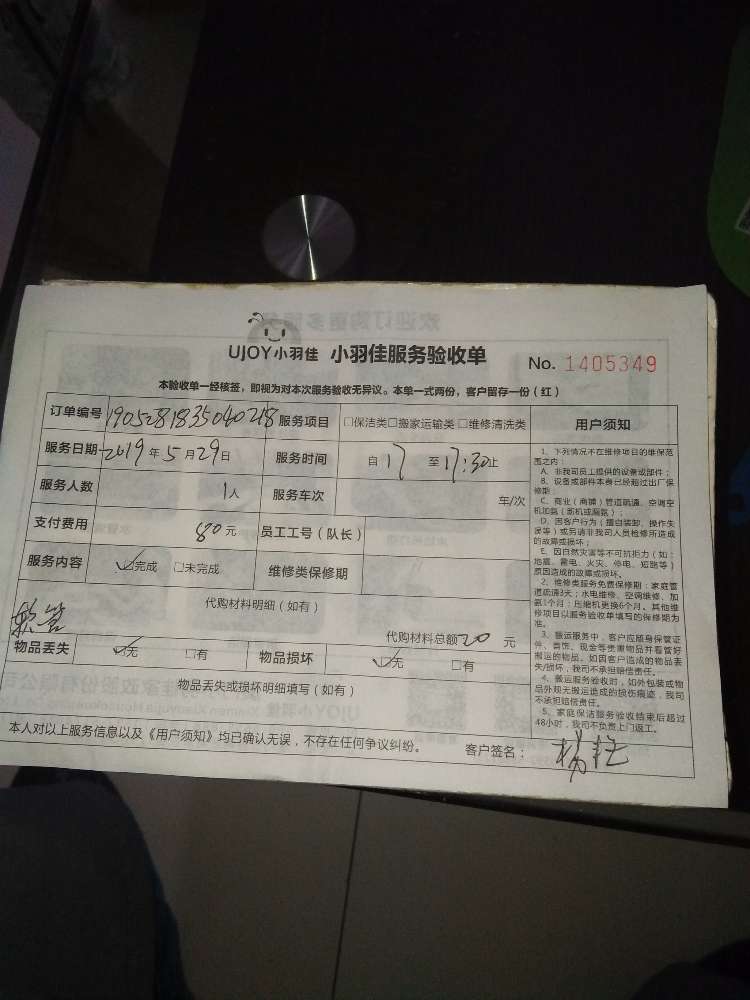 UJOY小羽佳 小羽佳服务验收单 No. 1405349
本验收单一经核签，即视为对本次服务验收无异议。本单一式两份，客户留存一份（红）
订单编号 1905281835040218 服务项目 □保洁类□搬家运输类□维修清洗类
服务日期 2019年5月29日 服务时间 自17至17:30止
服务人数 1人 服务车次 车/次
支付费用 80元 员工工号（队长）
服务内容 ☑完成 □未完成 维修类保修期
代购材料明细（如有）
软管 代购材料总额20元
物品丢失 ☑无 □有 物品损坏 ☑无 □有
物品丢失或损坏明细填写（如有）
本人对以上服务信息以及《用户须知》均已确认无误，不存在任何争议纠纷。 客户签名：
用户须知
1、下列情况不在维修项目的维保范
围之内：
A、非我司员工提供的设备或部件；
B、设备或部件本身已经超过出厂保
修期；
C、商业（商铺）管道疏通、空调空
机加氨（新机或漏氨）；
D、因客户行为（擅自装卸、操作失
误等）或另请非我司人员检修所造成
的故障或损坏；
E、因自然灾害等不可抗拒力（如：
地震、雷电、火灾、停电、短路等）
原因造成的故障或损坏。
2、维修类服务免费保修期：家庭管
道疏通3天；水电维修、空调维修、加
氨1个月；压缩机更换6个月，其他维
修项目以服务验收单填写的保修期为
准。
3、搬运服务中，客户应随身保管证
件、首饰、现金等贵重物品并看管好
搬运的物品。如因客户造成的物品丢
失/损坏，我司不承担赔偿责任。
4、搬运服务验收时，如外包装或物
品外观无搬运造成的损伤痕迹，我司
不承担赔偿责任。
5、家庭保洁服务验收结束后超过
48小时，我司不负责上门返工。